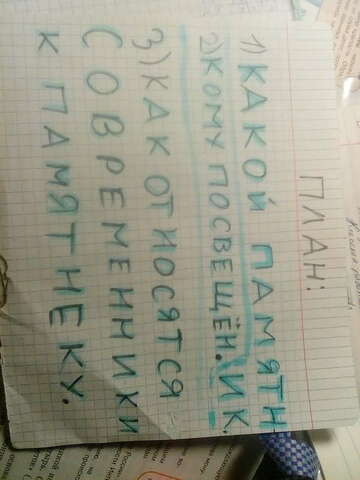 ПЛАН:
1) КАКОЙ ПАМЯТН
2) КОМУ ПОСВЕЩЁН. ИК.
3) КАК ОТНОСЯТСЯ
СОВРЕМЕННИКИ
К ПАМЯТНЕКУ.